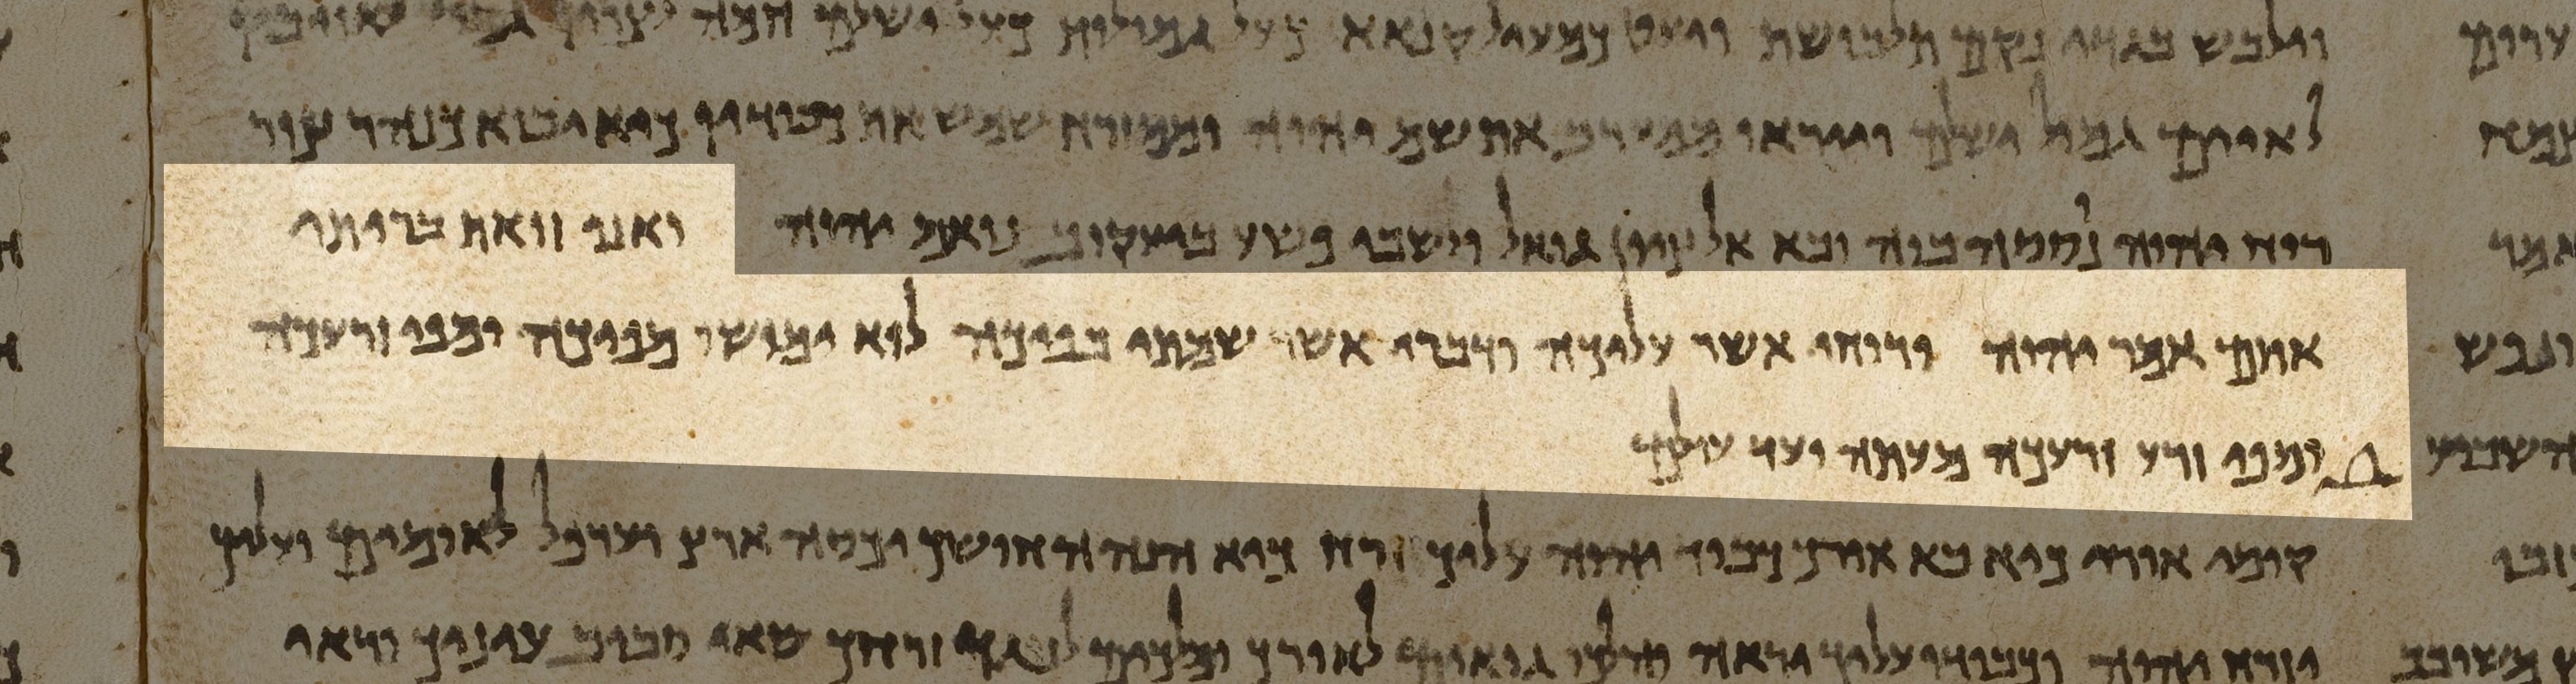 וילבש בגדי נקם תלבושת ויעט כמעיל קנאא כעל גמולות כעל ישלם חמה לצריו גמול לאויביו
לאיים גמול ישלם וייראו ממערב את שם יהוה וממזרח שמש את כבודו כיא יבוא כנהר צור
רוח יהוה נססה בוה ובא אל ציון גואל ולשבי פשע ביעקוב נואם יהוה ואני זואת בריתי
אתם אמר יהוה ורוחי אשר עליכה ודברי אשר שמתי בפיכה לוא ימושו מפיכה ומפי זרעכה
ומפי זרע זרעכה מעתה ועד עולם
קומי אורי כיא בא אורך וכבוד יהוה עליך זרח כיא הנה ההחושך יכסה ארץ וערפל לאומים ועליך
יזרח יהוה וכבודו עליך יראה והלכו גואים לאורך ומלכים לנגד זרחך שאי סביב עיניך וראי